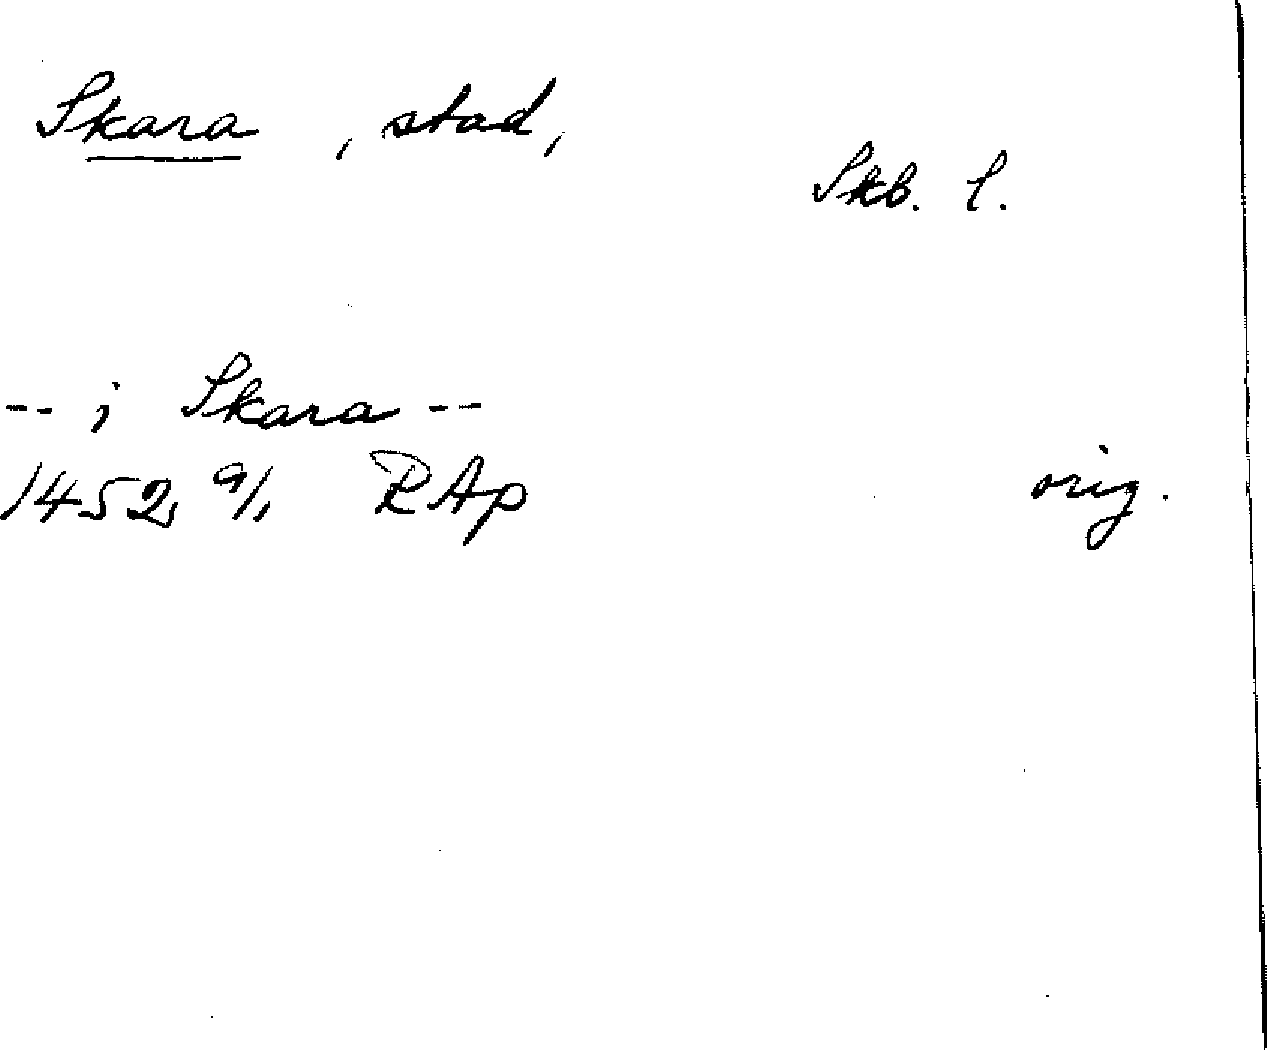 Skara, stad,
Skb. l.
-- i Skara --
1452 9/1 RAp orig.